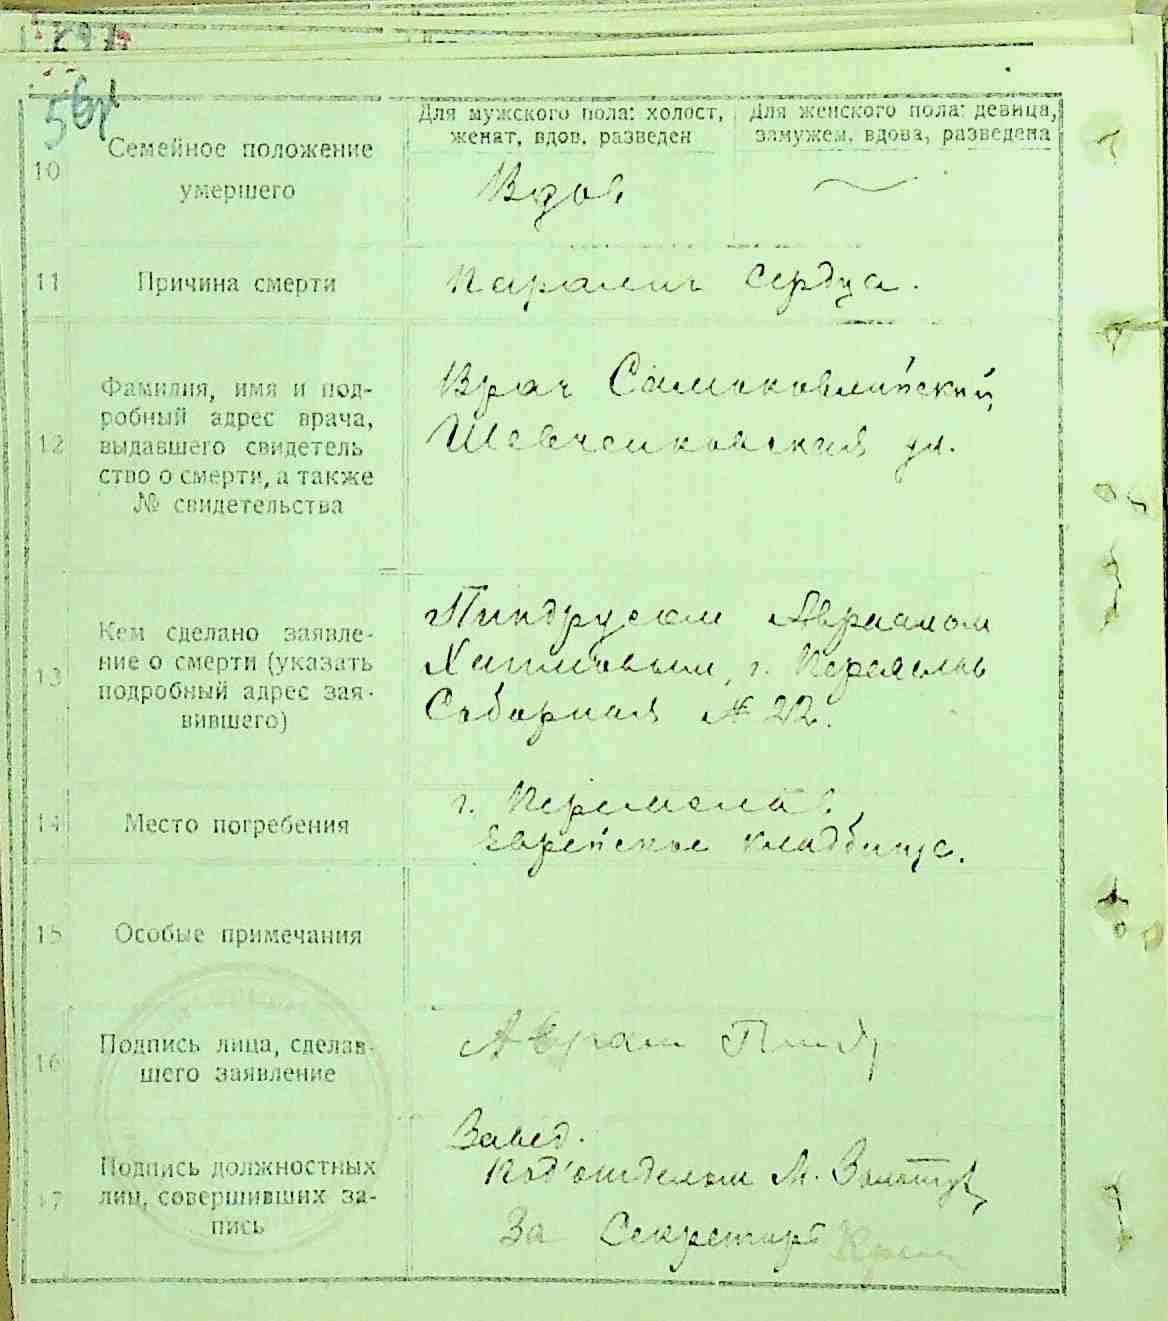 56
Для мужского пола: холост, женат, вдов, разведен
Для женского пола: девица, замужем, вдова, разведена
10 Семейное положение умершего
Вдов
11 Причина смерти
Паралич сердца.
12 Фамилия, имя и под-
робный адрес врача,
выдавшего свидетель
ство о смерти, а также
№ свидетельства
Врач Самоковлийский
Шевченковская ул.
13 Кем сделано заявле-
ние о смерти (указать
подробный адрес зая-
вившего)
Пиндрусом Авраамом
г. Переяслав
Соборная № 22.
14 Место погребения
г. Переяслав
еврейское кладбище.
15 Особые примечания
16 Подпись лица, сделав-
шего заявление
Авраам
17 Подпись должностных
лиц, совершивших за-
пись
Завед.
Под'отделом М.
За Секретаря